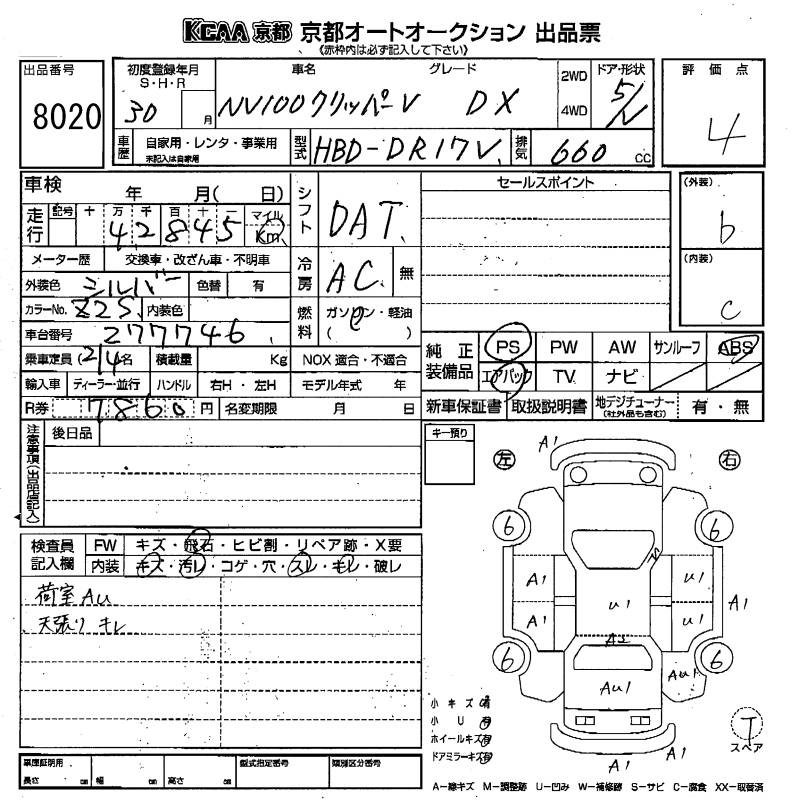 KCAA 京都 京都オートオークション 出品票
《赤枠内は必ず記入して下さい》
出品番号 8020
初度登録年月 S・H・R 30 月
車名 グレード NV100クリッパーV DX
2WD 4WD
ドア・形状 5/V
評価点 4
車歴 自家用・レンタ・事業用 未記入は自家用
型式 HBD-DR17V
排気 660 cc
車検 年 月( 日)
シフト DAT
セールスポイント
(外装) b
(内装) c
走行 記号 十 万 千 百 十 一 マイル Km
4 2 8 4 5
メーター歴 交換車・改ざん車・不明車
冷房 AC 無
外装色 シルバー 色替 有
カラーNo. Z2S 内装色
燃料 ガソリン・軽油 ( )
車台番号 277746
乗車定員 (2)4名 積載量 Kg NOX 適合・不適合
輸入車 ディーラー・並行 ハンドル 右H・左H モデル年式 年
R券 7860 円 名変期限 月 日
純正装備品 PS PW AW サンルーフ ABS
エアバック TV ナビ
新車保証書 取扱説明書 地デジチューナー (社外品も含む) 有・無
注意事項(出品店記入) 後日品
キー預り
左 右
検査員記入欄 FW キズ・飛石・ヒビ割・リペア跡・X要
内装 キズ・汚レ・コゲ・穴・スレ・キレ・破レ
荷室 AU
天張り キレ
A1
6 6
A1 U1
U1 A1
A1 U1
A2
6 6
AU1 AU1
A1 A1
小キズ 有
小 U 有
ホイールキズ 有
ドアミラーキズ 有
T
スペア
車庫証明用 長さ cm 幅 cm 高さ cm 型式指定番号 類別区分番号
A−線キズ M−調整跡 U−凹み W−補修跡 S−サビ C−腐食 XX−取替済